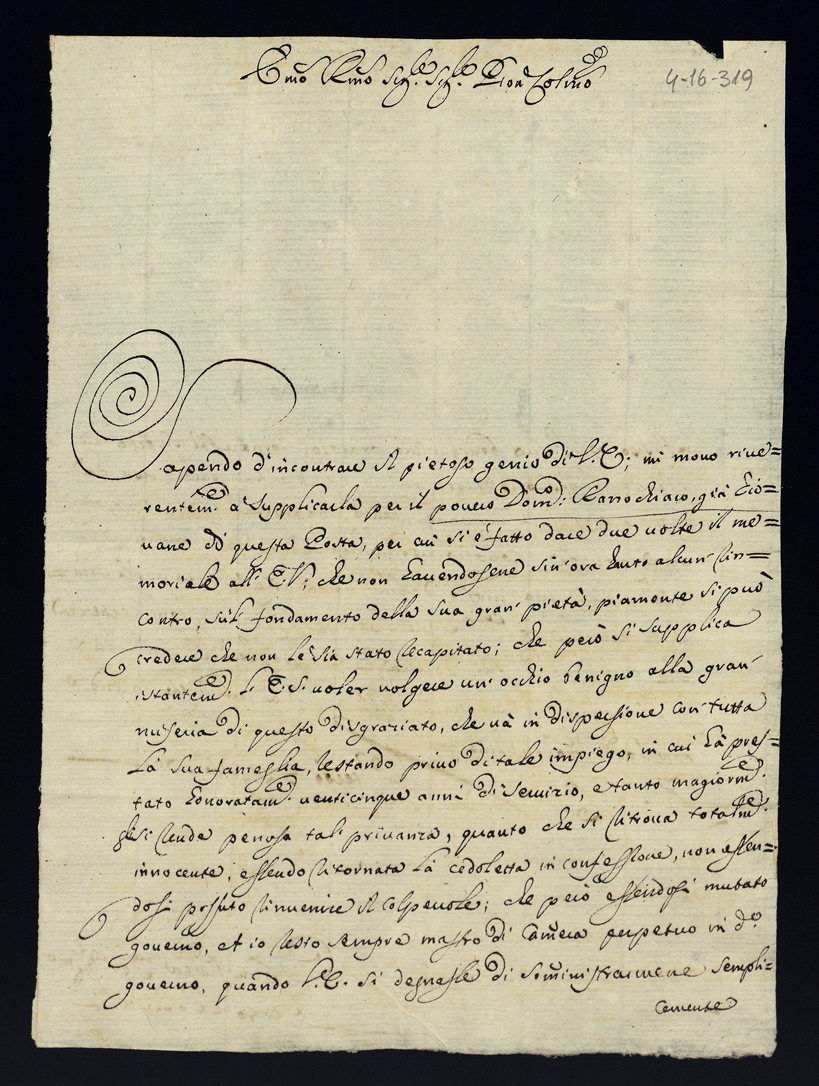 Emo Rmo Sigre Sigre Pron Colmo
4-16-319
Sapendo d'incontrare il pietoso genio di V.E; mi movo rive=
rentemte à supplicarla per il povero Domco: Parrochiaro, già Gio=
vane di questa Posta, per cui si è fatto dare due volte il me=
moriale all' E.V; che non havendosene sin' ora hauto alcun' rin=
contro, sùl fondamento della sua gran' pietà, piamente si può
credere che non le sia stato recapitato; che però si supplica
istantemte l' E.S. voler volgere un' occhio benigno alla gran'
miseria di questo disgraziato, che và in dispersione con' tutta
là sua fameglia, restando privo di tale impiego, in cui hà pres=
tato honoratamte venticinque anni di servizio, e tanto magiormte
gli si rende penosa tal' privanza, quanto che si ritrova totalmte
innocente, essendo ritornata là cedoletta in confessione, non essen=
dosi possuto rinvenire il colpevole; che però essendosi mutato
governo, et io resto sempre mastro di Camera perpetuo in do
governo, quando V.E. si degnasse di somministrarmene sempli=
cemente